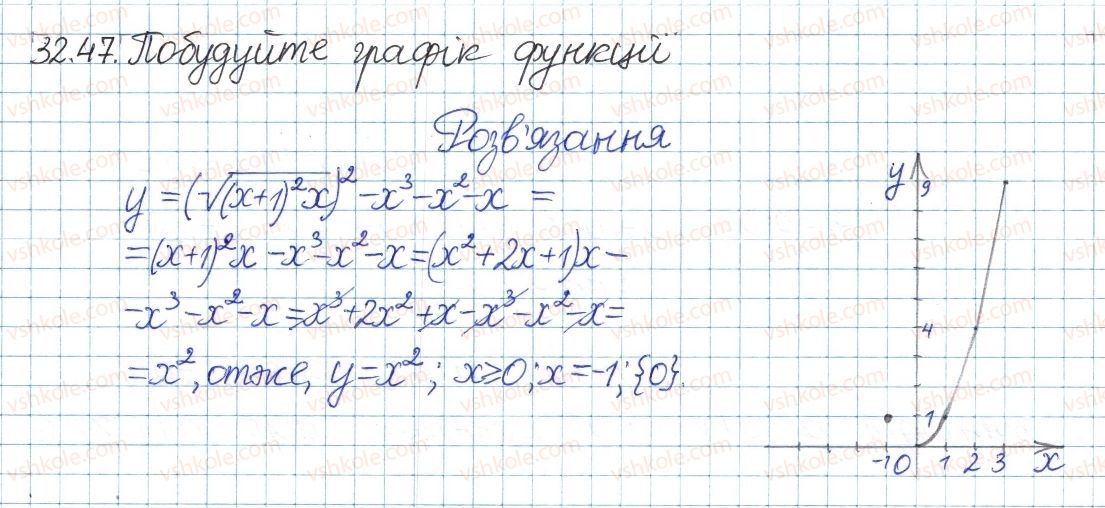 32.47. Побудуйте графік функції
Розв'язання
y = (√((x+1)²x))² - x³ - x² - x =
= (x+1)²x - x³ - x² - x = (x² + 2x + 1)x -
- x³ - x² - x = x³ + 2x² + x - x³ - x² - x =
= x², отже, y = x²; x ≥ 0; x = -1; {0}.
y
9
4
1
-1 0 1 2 3 x
vshkole.com